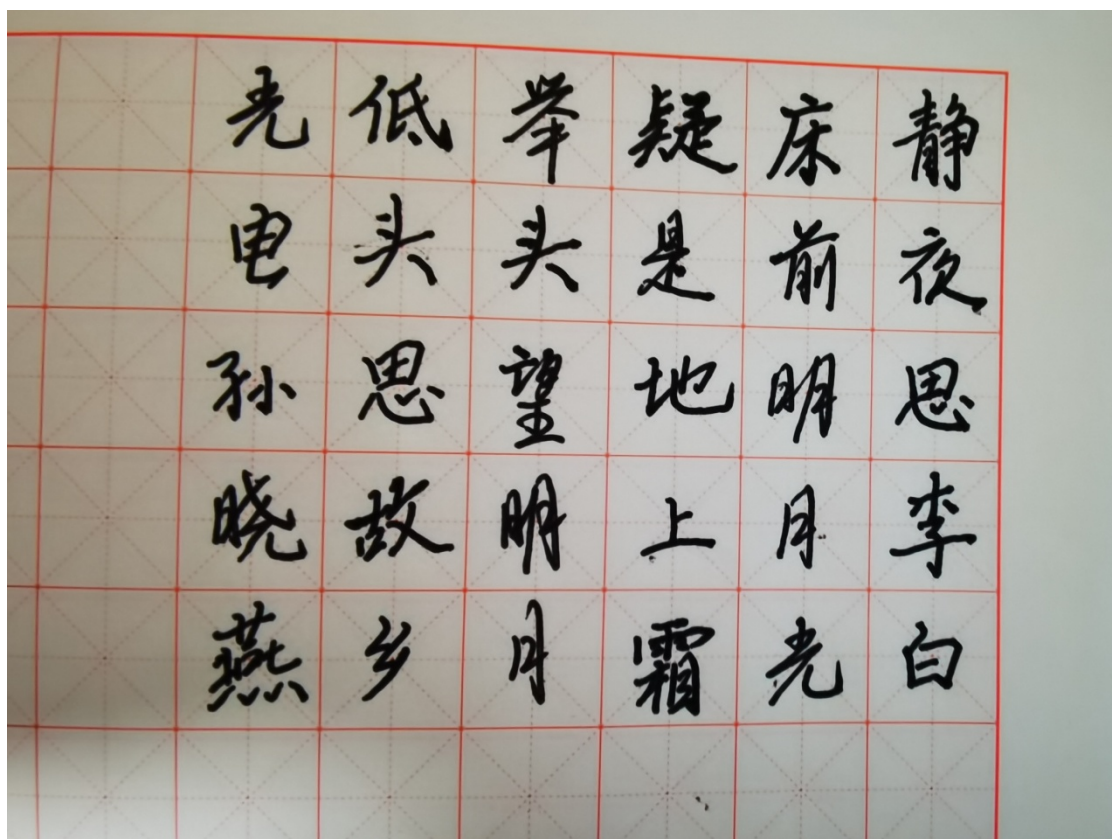 静夜思李白
床前明月光
疑是地上霜
举头望明月
低头思故乡
光电孙晓燕